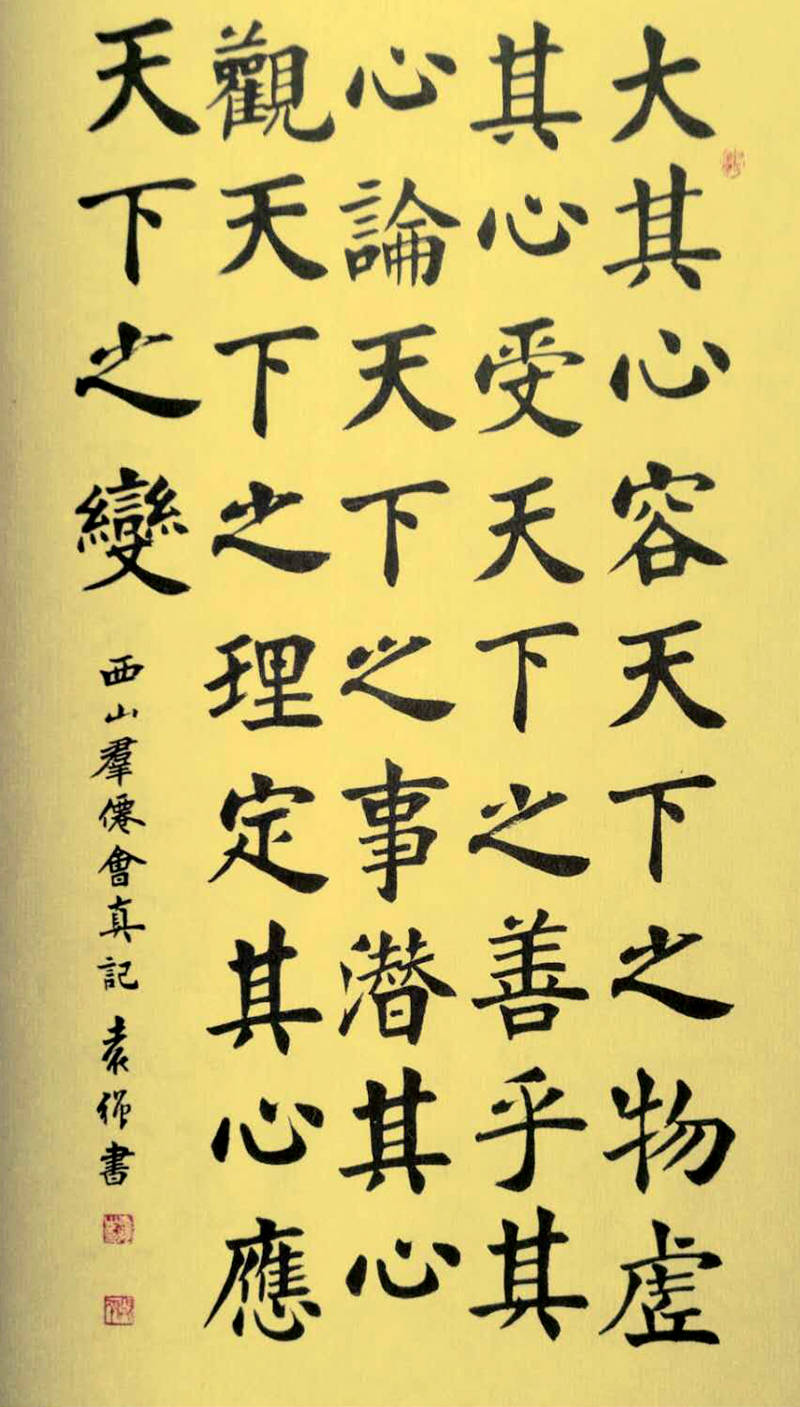 大其心容天下之物虛
其心受天下之善乎其
心論天下之事潜其心
觀天下之理定其心應
天下之變
西山羣僊會真記 袁書